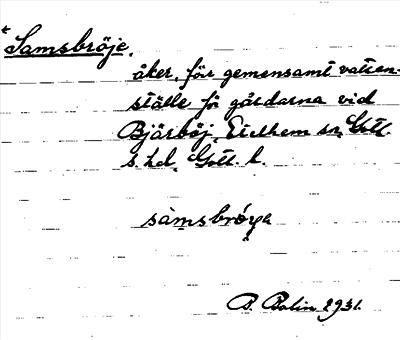 *Samsbröje,
åker, förr gemensamt vatten-
ställe för gårdarna vid
Bjärböj, Etelhem sn, Gotl.
s. hd, Gotl. l.
sàmsbrǫya
B. Bolin 1931.